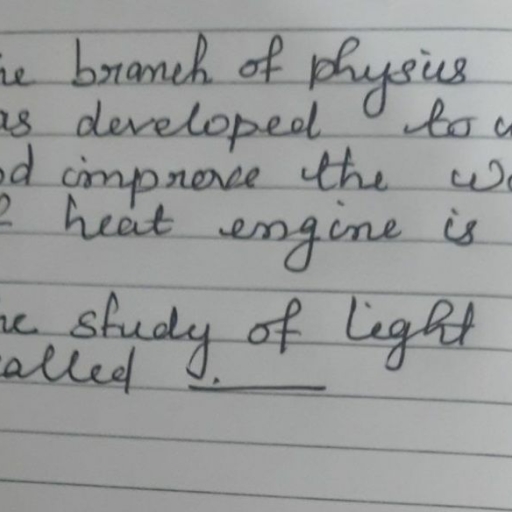 he branch of physics
as developed to u
nd improve the wo
f heat engine is
he study of light
called ____